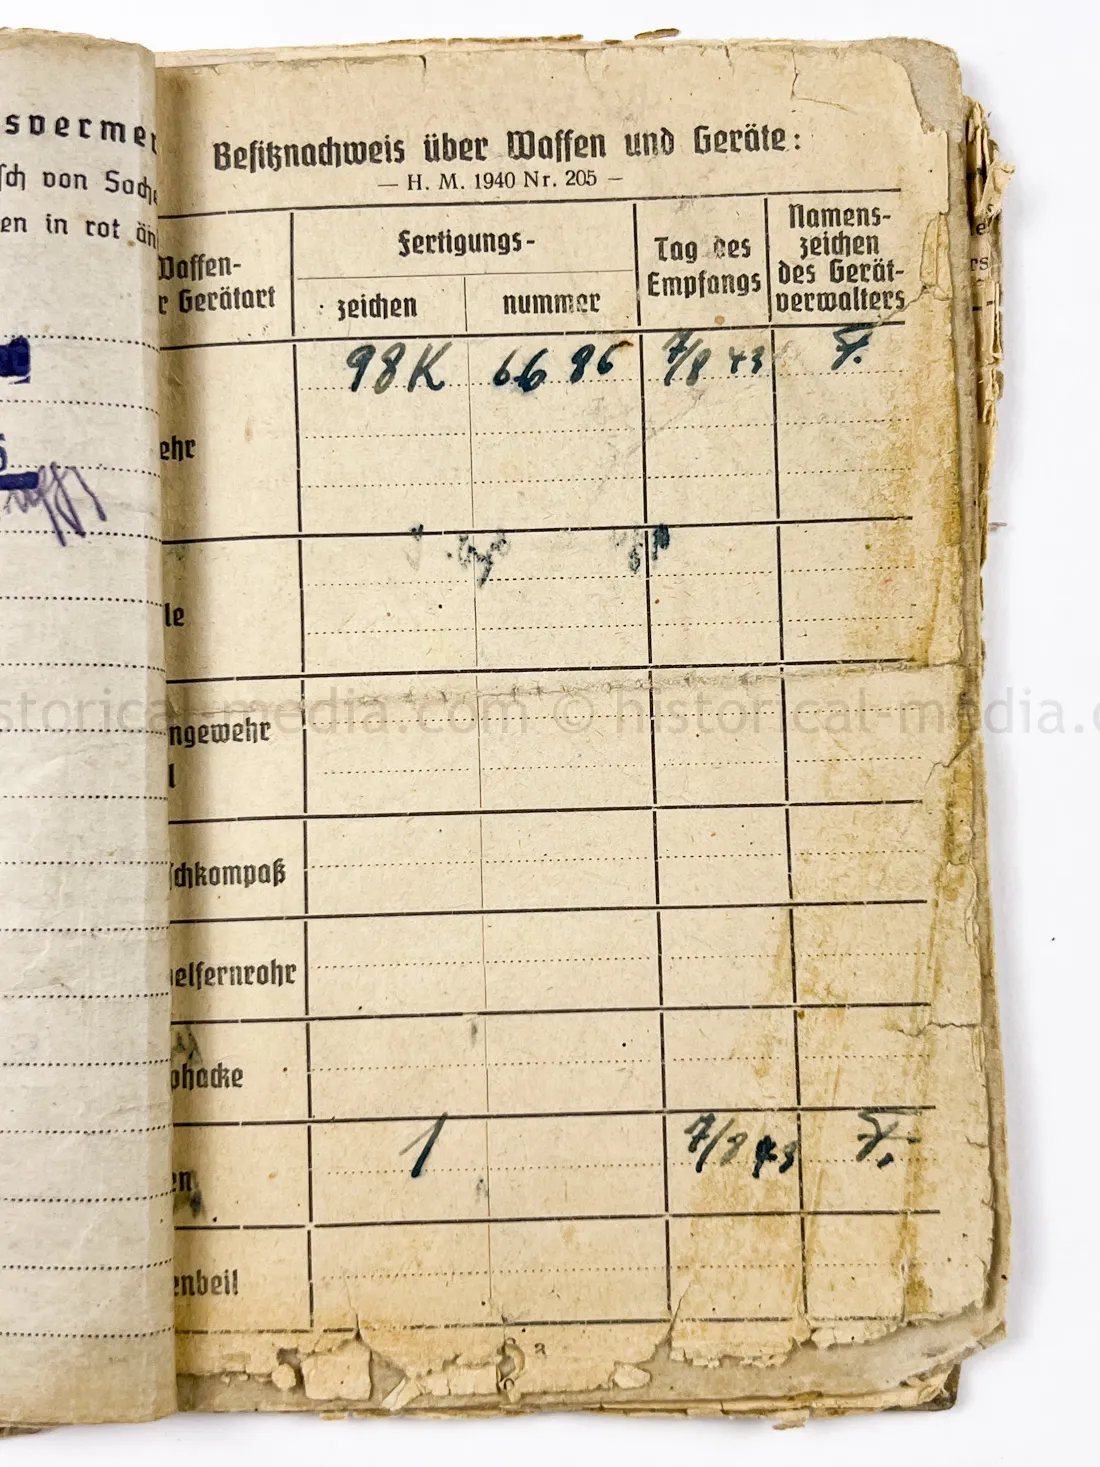 svermer
sch von Sache
en in rot än
Besitznachweis über Waffen und Geräte:
— H. M. 1940 Nr. 205 —
Waffen-
r Gerätart
Fertigungs-
zeichen
nummer
Tag des
Empfangs
Namens-
zeichen
des Gerät-
verwalters
98K 6686 7/8 43 F.
ehr
le
ngewehr
l
schkompaß
elfernrohr
hacke
1 7/8 43 F.
en
enbeil
8 a
storical-media.com © historical-media.c